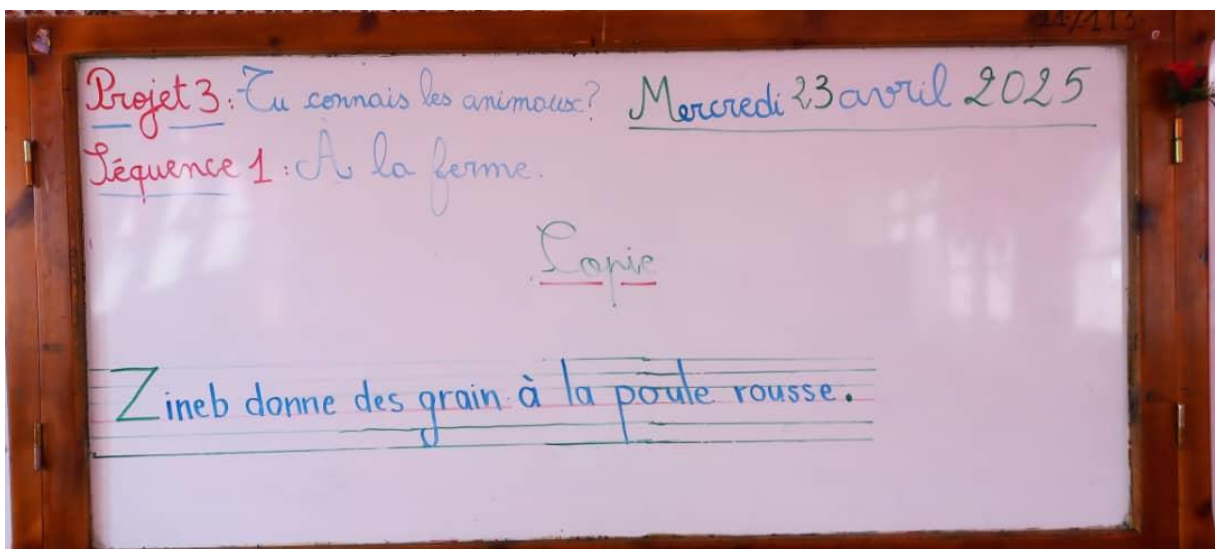 Projet 3 : Tu connais les animaux ? Mercredi 23 avril 2025
Séquence 1 : À la ferme.
Copie
Zineb donne des grain à la poule rousse.